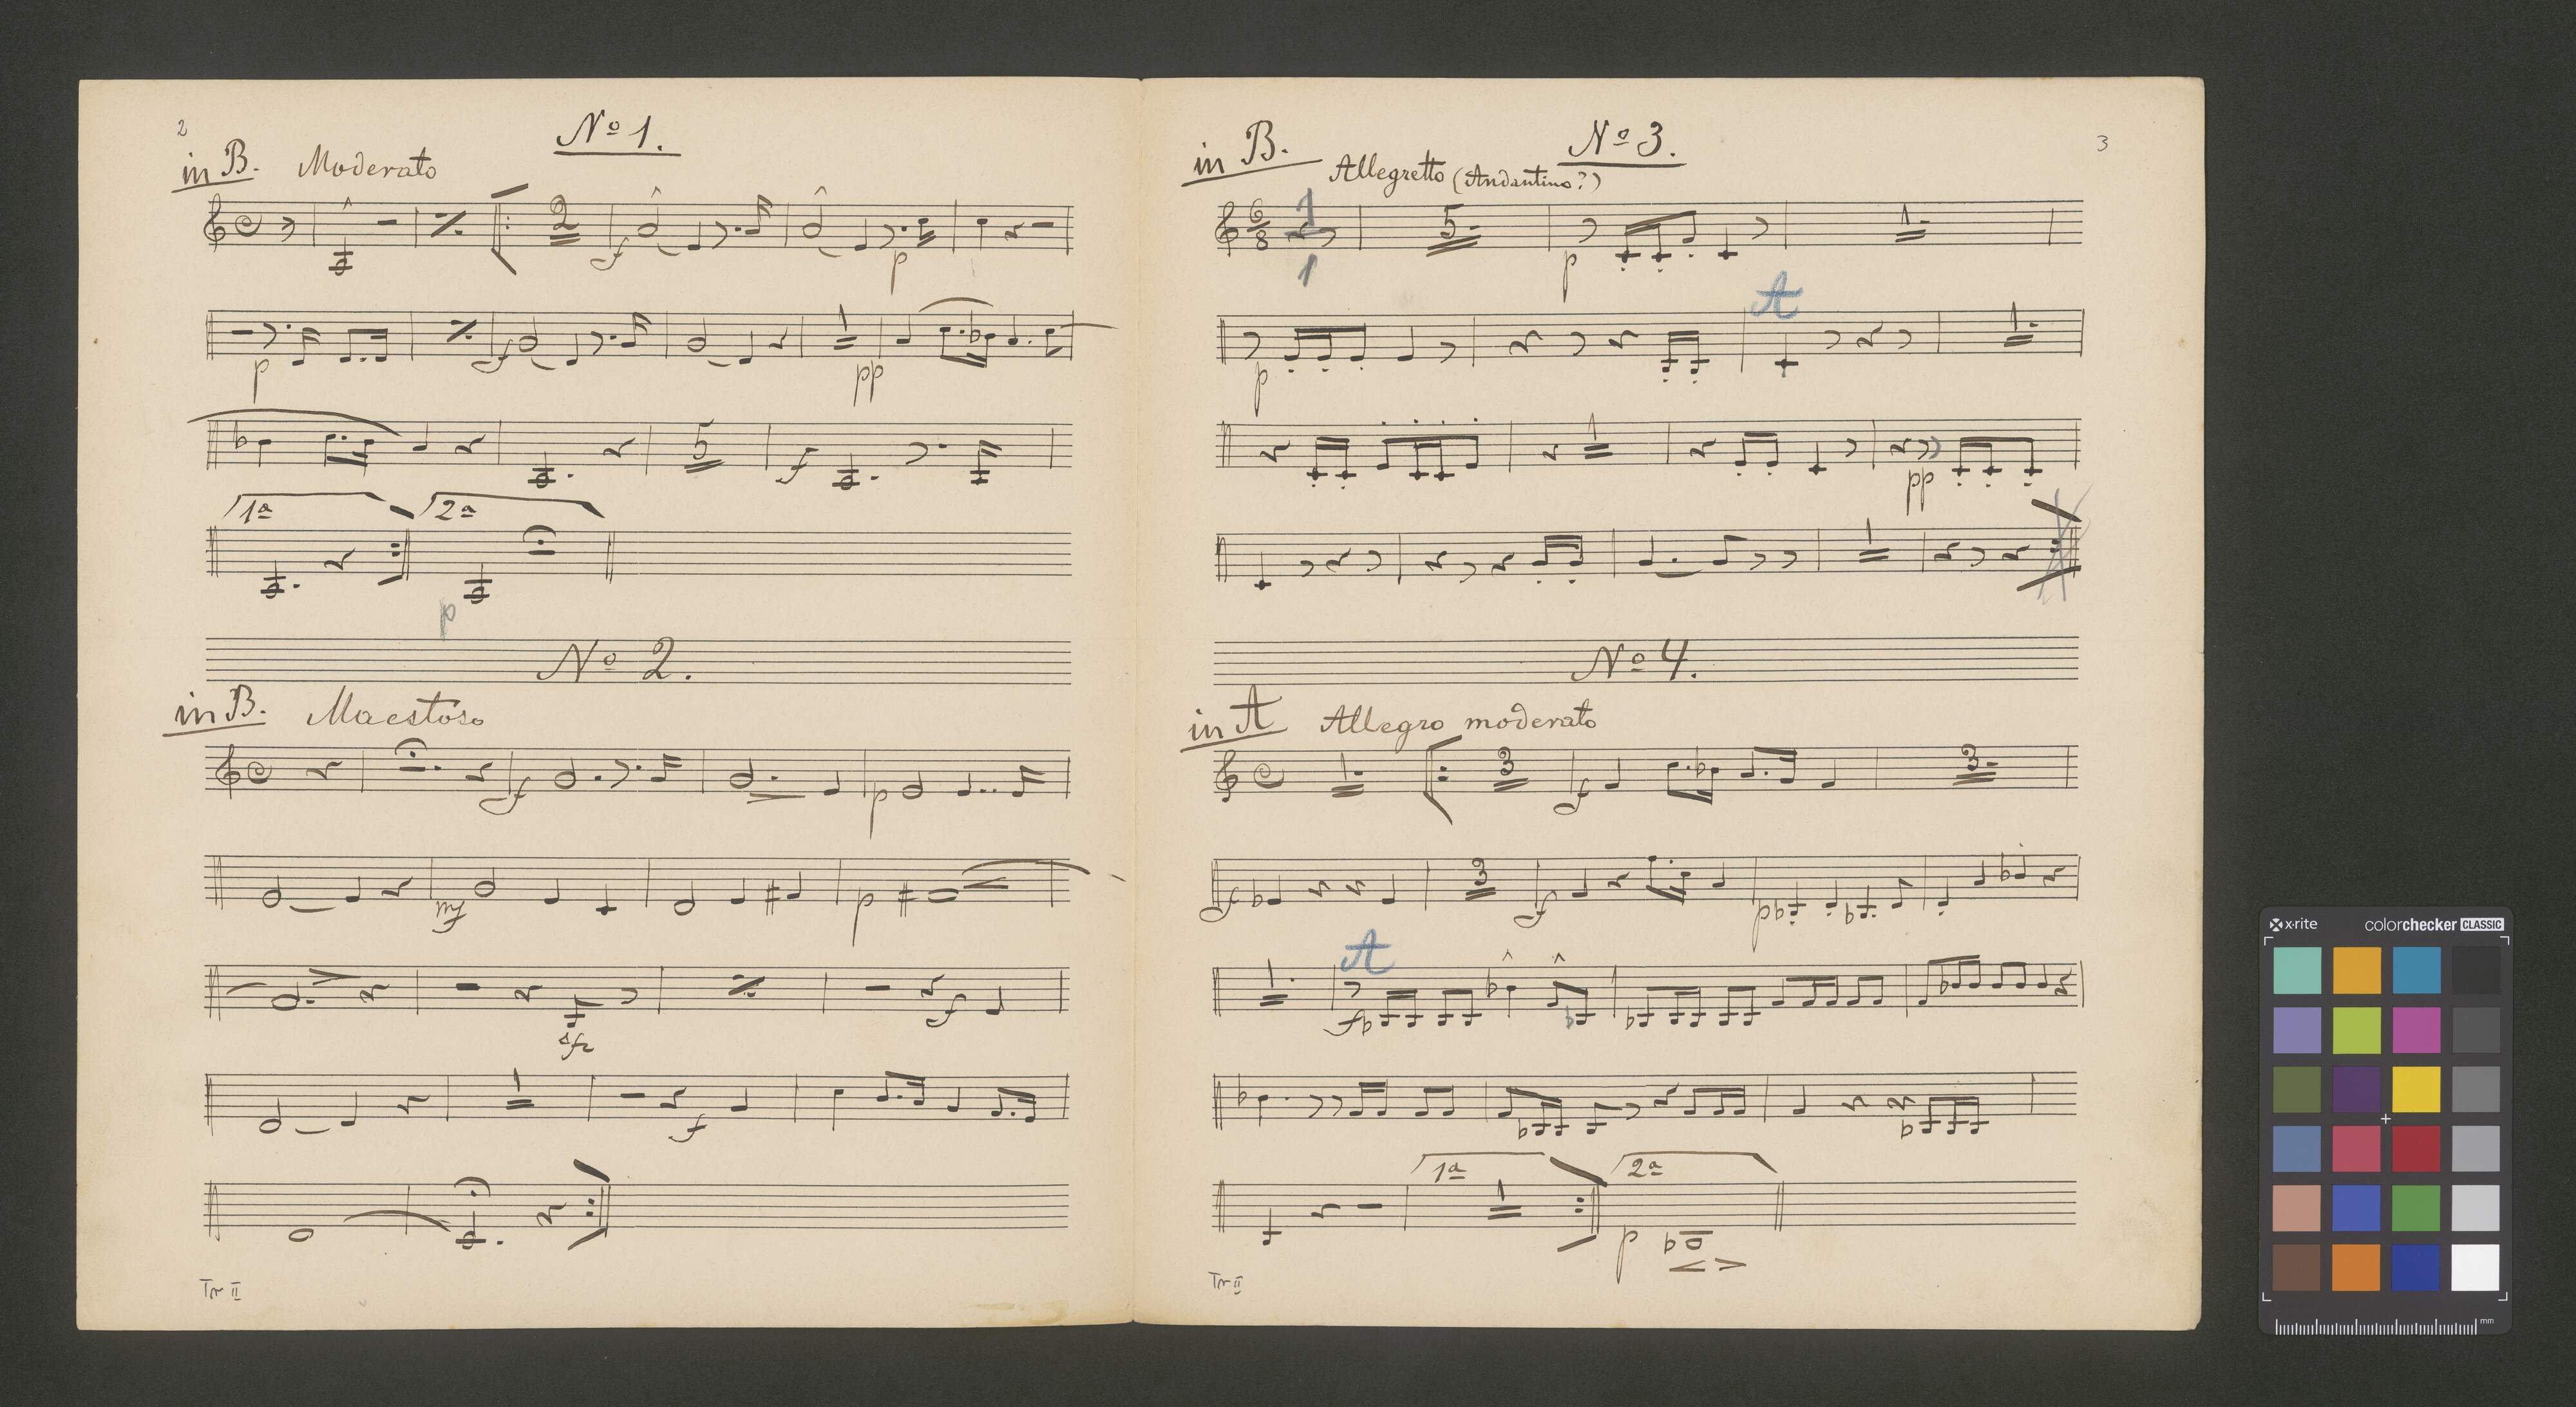 2
No 1.
in B. Moderato
2
f
p
p
f
pp
5
f
1a
2a
p
No 2.
in B. Maestoso
f
p
mf
p
sfz
f
f
Tr II
3
No 3.
in B. Allegretto (Andantino?)
6
8
1
5
1
p
1
A
p
1
1
pp
1
No 4.
in A Allegro moderato
1
3
f
3
f
3
f
p
1
A
f
1a
1
2a
p
Tr II
x-rite
colorchecker CLASSIC
mm